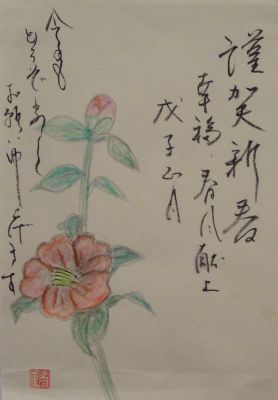 謹賀新春
幸福・春風献上
戊子正月
今年も
どうぞよろしく
お願い申し上げます